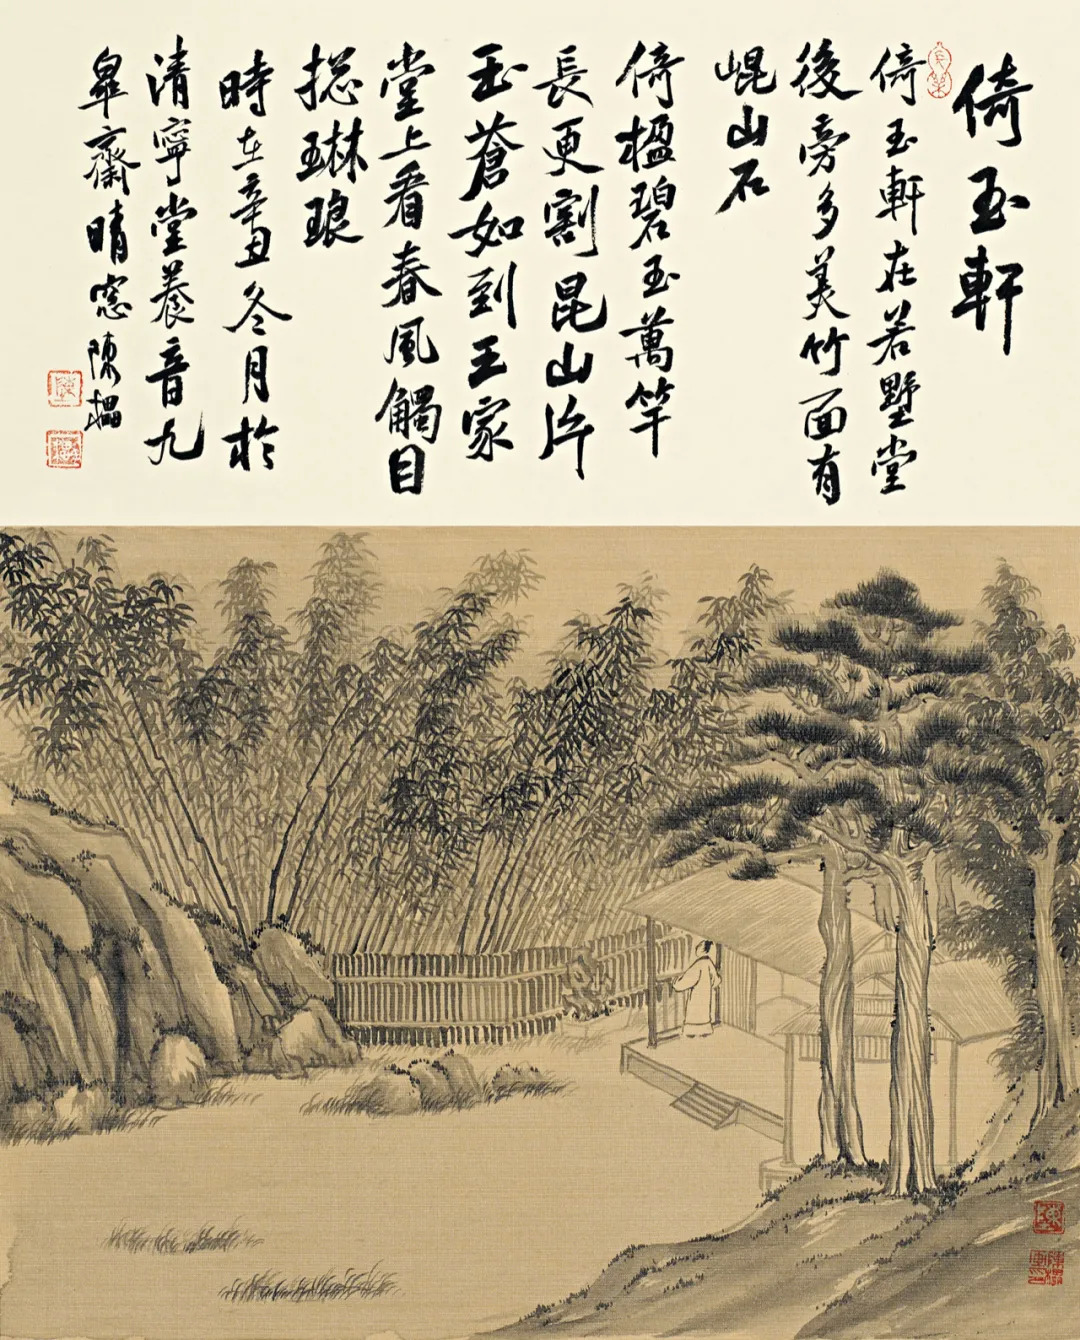 倚玉軒
倚玉軒在若墅堂
後旁多美竹面有
崐山石
倚楹碧玉萬竿
長更割昆山片
玉蒼如到王家
堂上看春風觸目
揔琳琅
時在辛丑冬月於
清寧堂養音九
皐齋晴窓陳